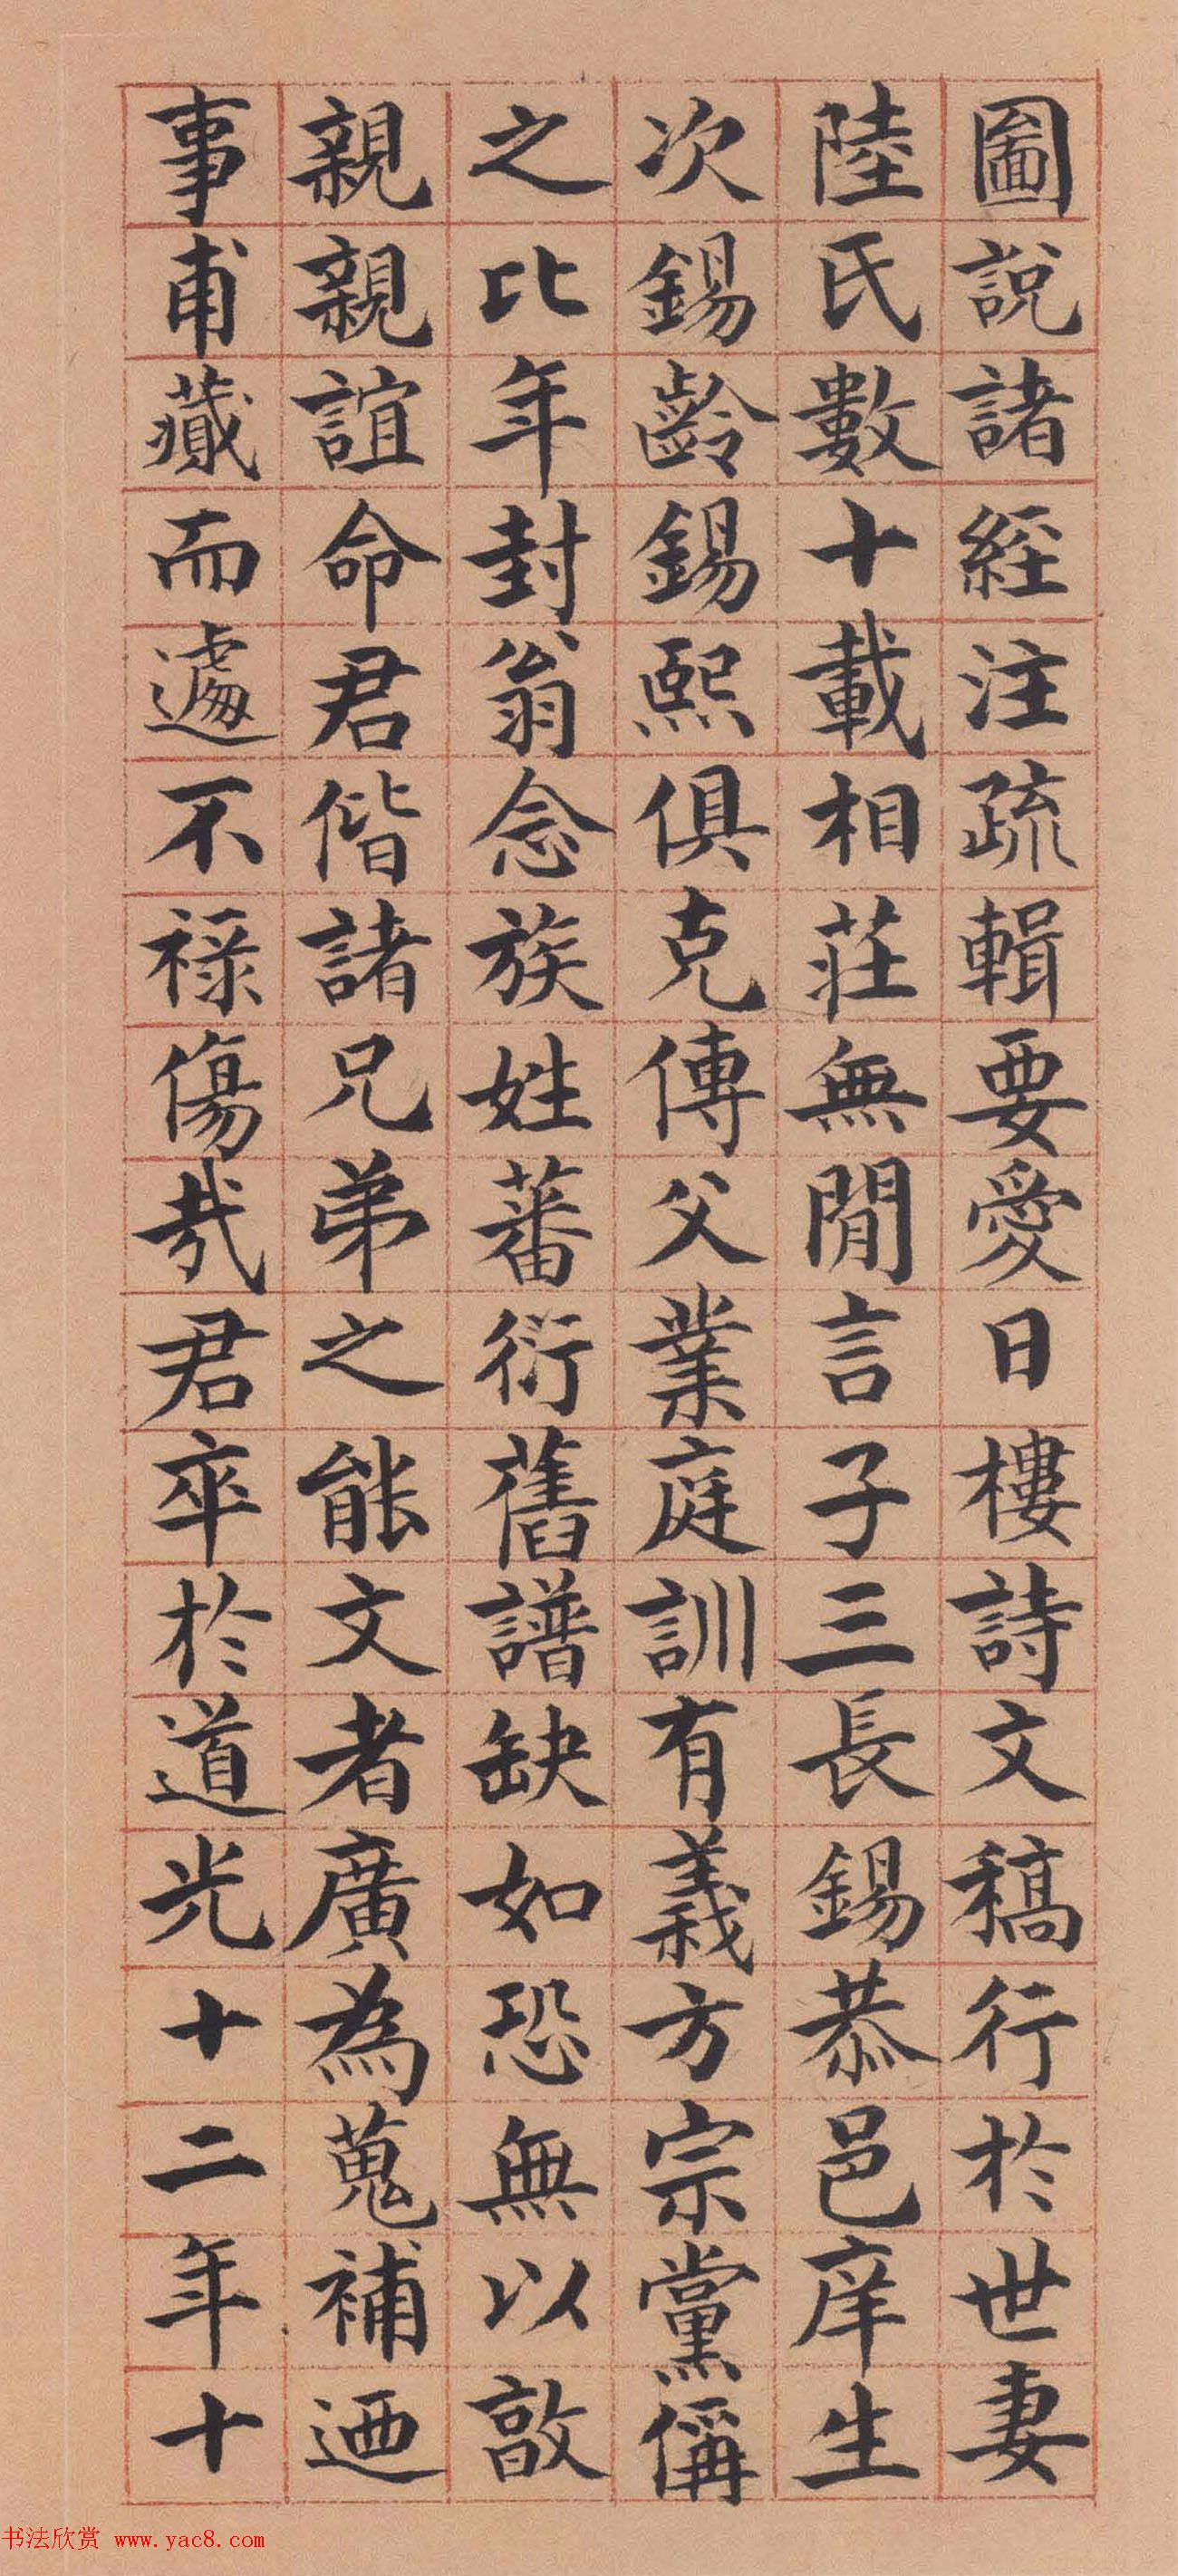 圖說諸經注疏輯要愛日樓詩文稿行於世妻
陸氏數十載相莊無閒言子三長錫恭邑庠生
次錫齡錫熙俱克傳父業庭訓有義方宗黨偁
之比年封翁念族姓蕃衍舊譜缺如恐無以敦
親親誼命君偕諸兄弟之能文者廣為蒐補迺
事甫蕆而遽不祿傷哉君卒於道光十二年十
书法欣赏 www.yac8.com